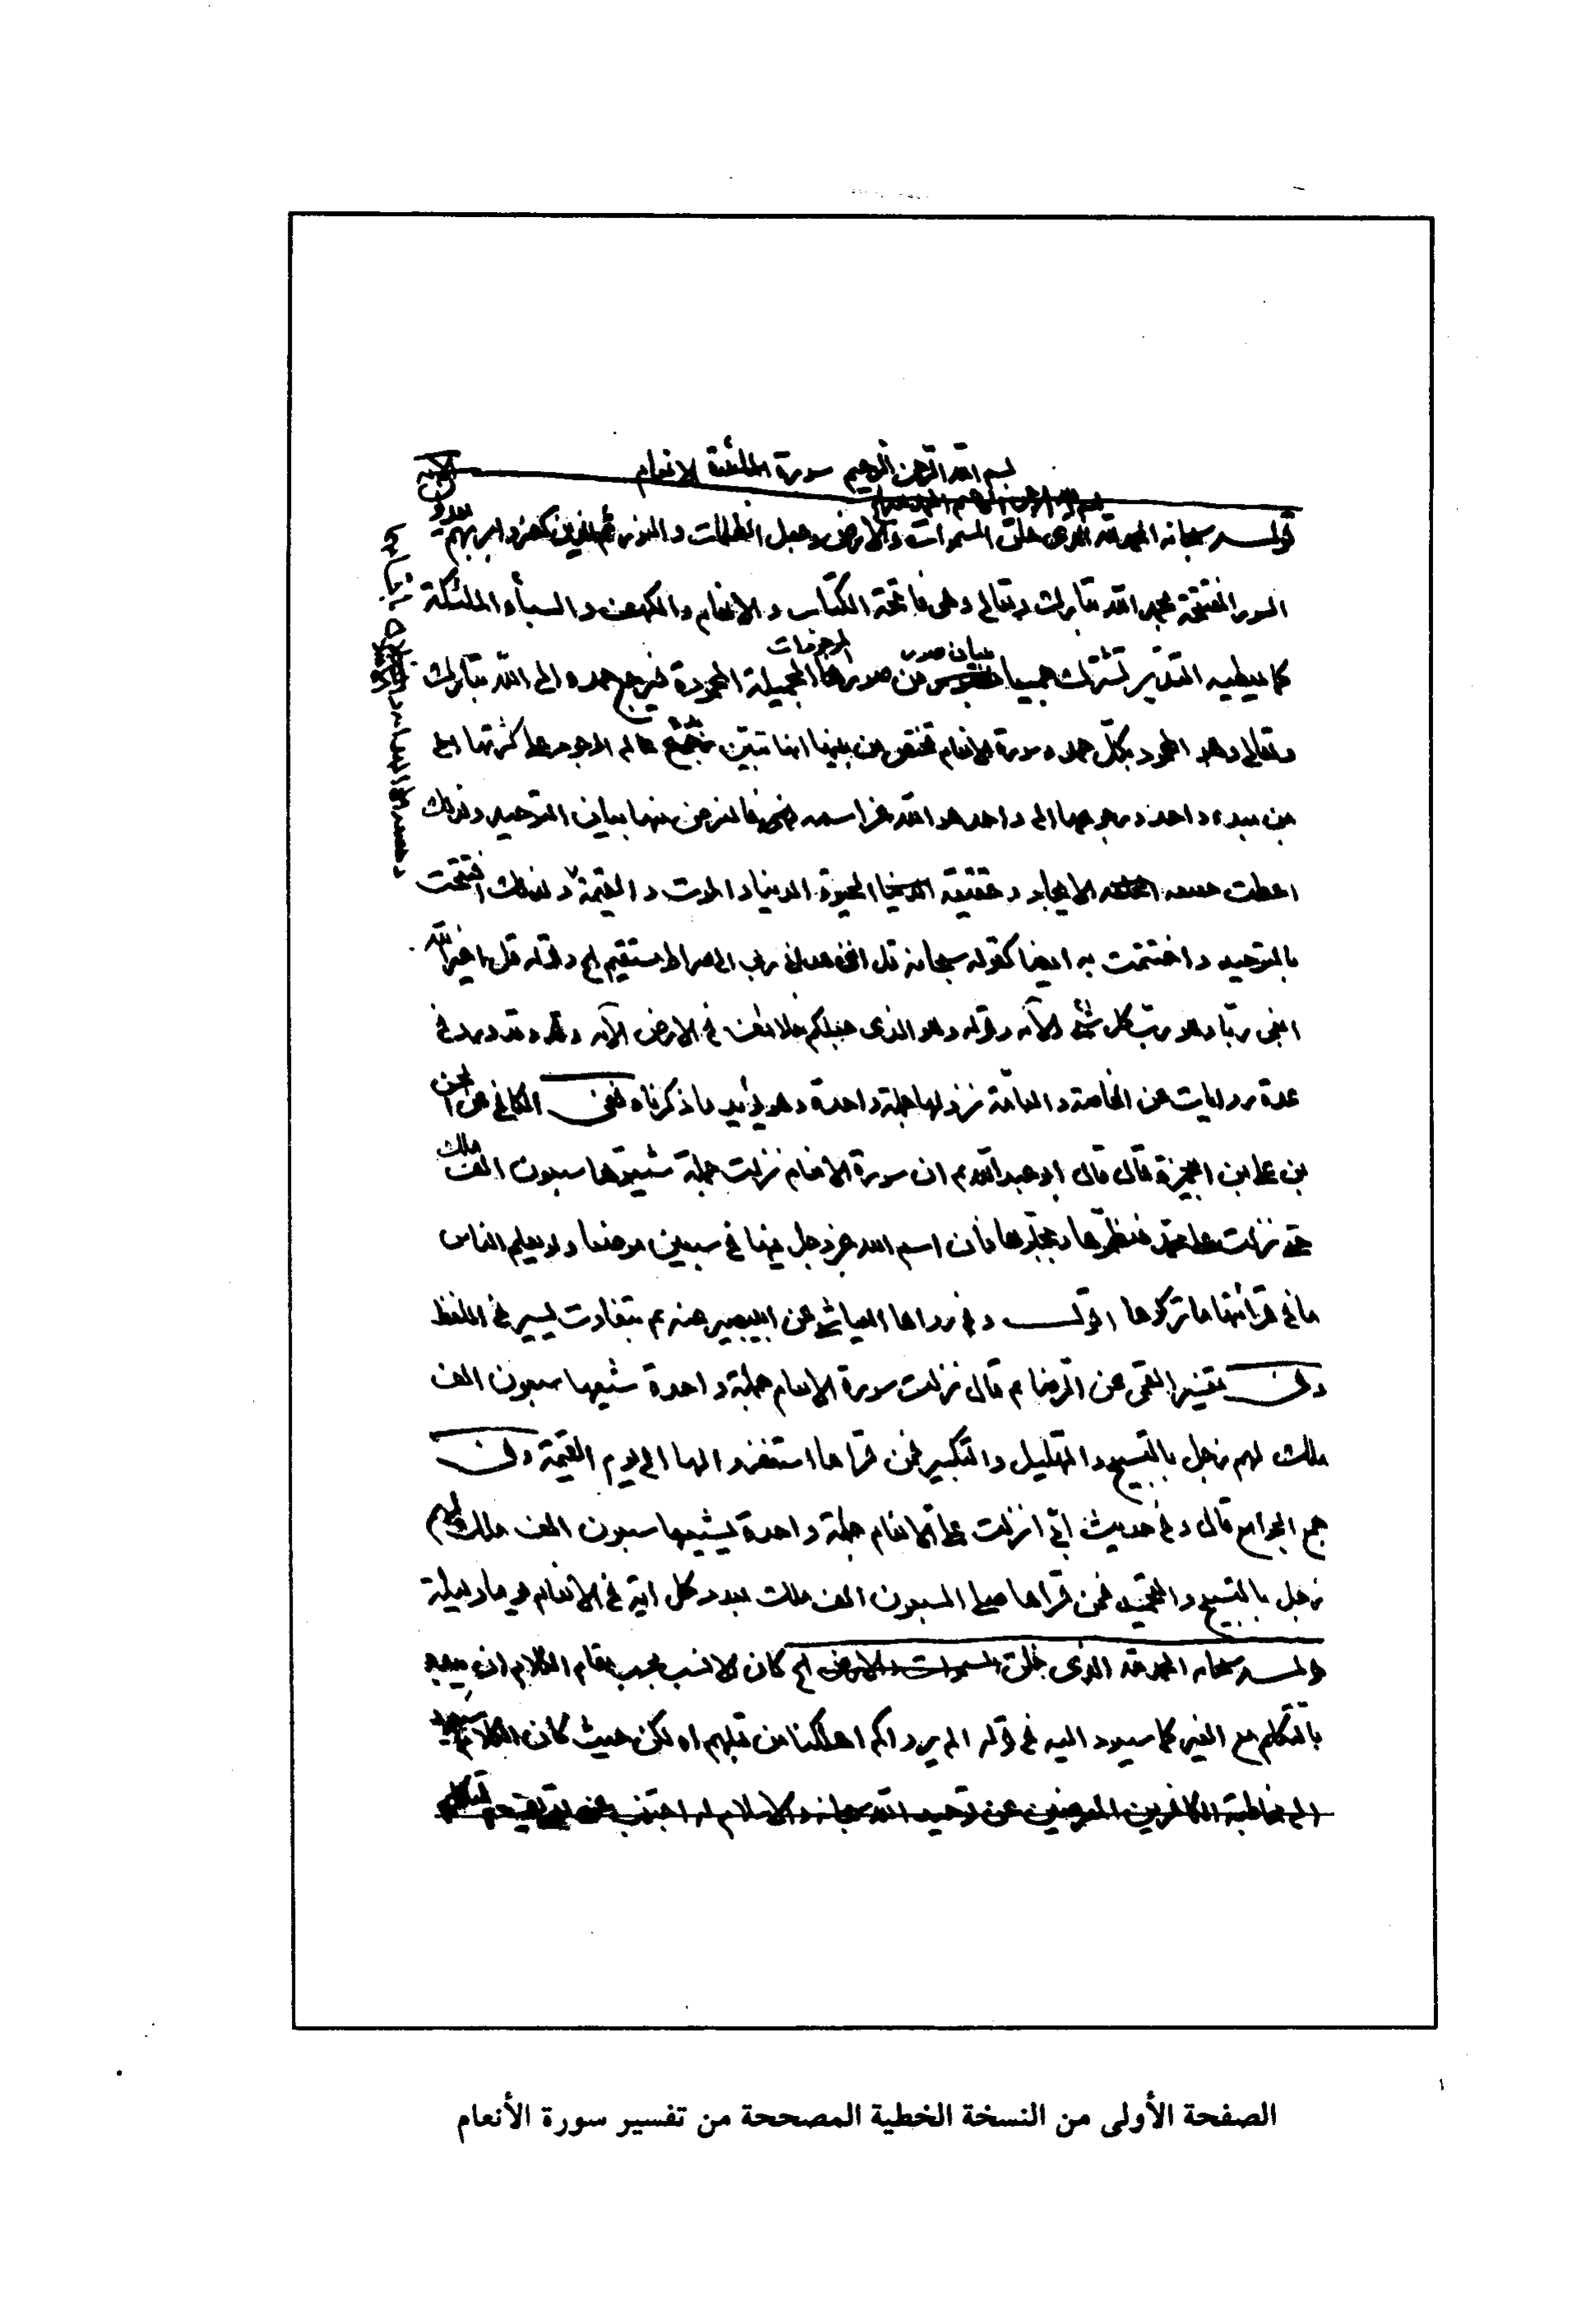 بسم الله الرحمن الرحيم سورة الانعام
قوله سبحانه الحمد لله الذى خلق السموات والارض وجعل الظلمات والنور ثم الذين كفروا بربهم
السور المفتتحة بحمد الله تبارك وتعالى وهى فاتحة الكتاب والانعام والكهف والسبأ والملئكة
كما يعطيه التدبر تشترك جميعا
بيان صدور
الموجودات
الجميلة المحمودة فيرجع حمده الى الله تبارك
وتعالى وهو المحمود بكل حمد وسورة الانعام تختص من بينها انها تبين عالم الوجود على كثرتها الى
من مبدء واحد ورجوعها الى واحد هو الله عز اسمه فالغرض منها بيان التوحيد ولذلك
اعطت الايجاد وحقيقة الحيوة الدنيا والموت والقيمة ولذلك افتتحت
بالتوحيد واختتمت به ايضا كقوله سبحانه قل اننى هدانى ربى الى صراط مستقيم الخ وقوله قل اغير الله
ابغى ربا وهو رب كل شئ الآية وقوله وهو الذى جعلكم خلائف فى الارض الآية وقد ورد فى
عدة روايات عن الخاصة والعامة نزولها جملة واحدة وهو يؤيد ما ذكرناه ففى الكافى عن الحسن
بن على بن ابيحمزة قال قال ابو عبدالله م ان سورة الانعام نزلت جملة شيعها سبعون الف ملك
حتى نزلت على محمد فعظموها وبجلوها فان اسم الله عز وجل فيها فى سبعين موضعا ولو يعلم الناس
ما فى قرائتها ما تركوها اقول وروا‌ها العياشى عن ابيبصير عنه م بتفاوت يسير فى اللفظ
وفى تفسير القمى عن الرضا م قال نزلت سورة الانعام جملة واحدة شيعها سبعون الف
ملك لهم زجل بالتسبيح والتهليل والتكبير فمن قراها استغفروا لها الى يوم القيمة وفى
جمع الجوامع قال وفى حديث ابى انزلت على الانعام جملة واحدة يشيعها سبعون الف ملك لهم
زجل بالتسبيح والتحميد فمن قراها صلى السبعون الف ملك بعدد كل اية فى الانعام يوما وليلة
قوله سبحانه الحمد لله الذى خلق السموات والارض الخ كان الانسب بحسب مقام الكلام ان
بالتكلم مع الغير كما سيعود اليه فى قوله الم يروا كم اهلكنا من قبلهم اه لكن حيث كان الكلام
الى مخاطبة الكافرين المعرضين عن توحيد الله سبحانه والاسلام له
الصفحة الأولى من النسخة الخطية المصححة من تفسير سورة الأنعام